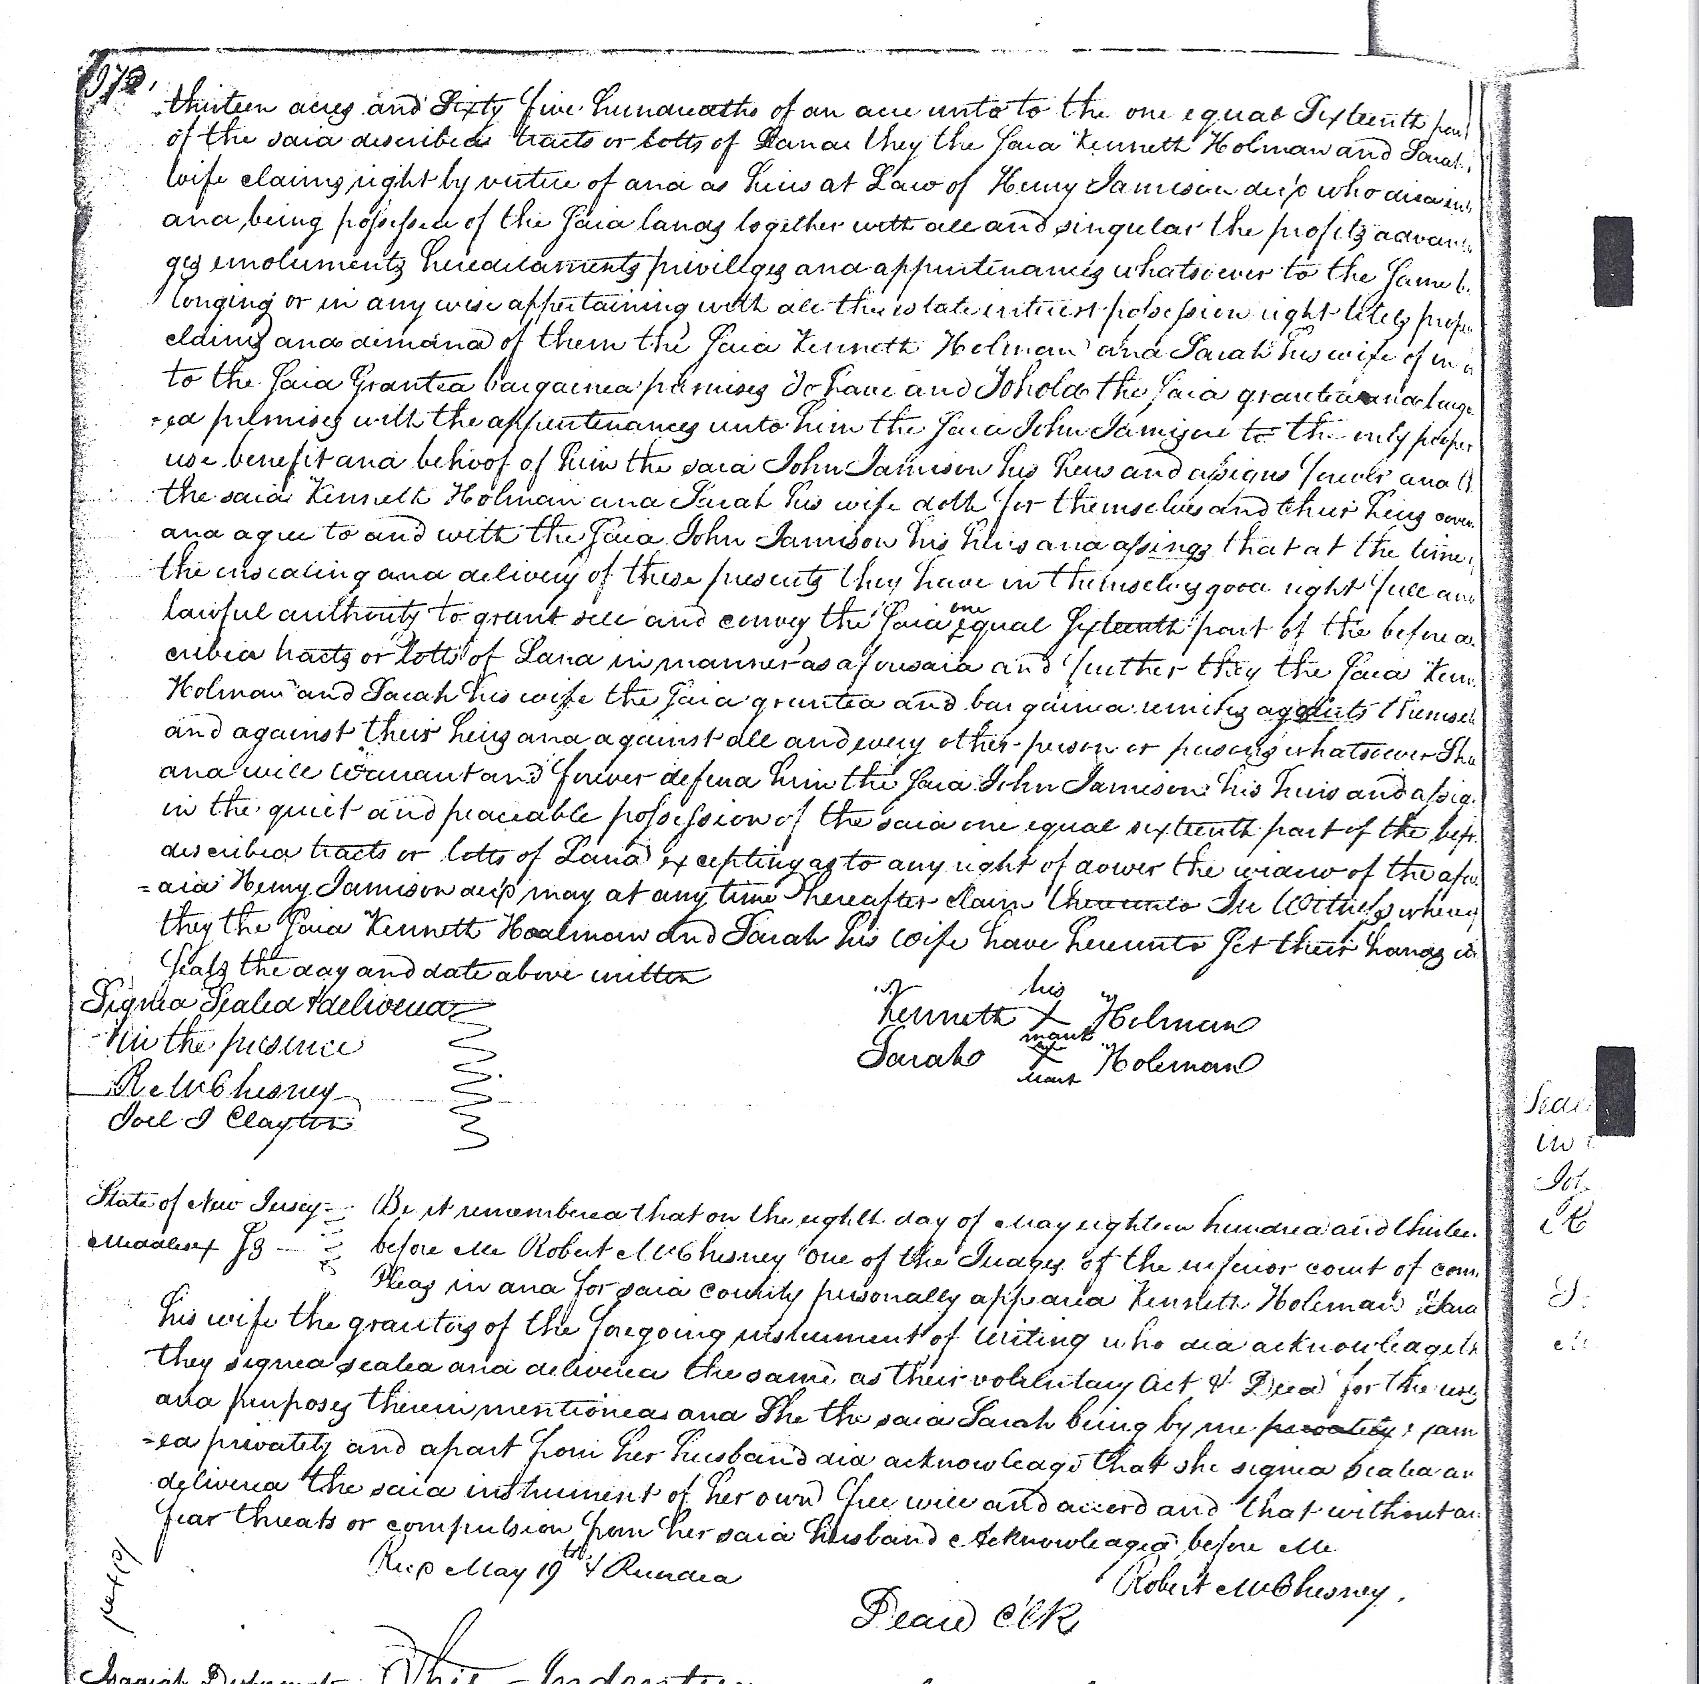 972,
thirteen acres and Sixty five hundreaths of an acre unto to the one equal Sixteenth part
of the said described tracts or lotts of Land they the said Kenneth Holman and Sarah
wife claims right by virtue of and as heirs at Law of Henry Jamison decd who died
and being possessed of the said lands together with all and singular the profits advan
ges emoluments hereditaments privileges and appurtenances whatsoever to the same b
longing or in any wise appertaining with all the estate interest possession right
claim and demand of them the said Kenneth Holman and Sarah his wife of in
to the said Granted bargained premises To have and To hold the said granted and barga
=ed premises with the appurtenances unto him the said John Jamison to the only proper
use benefit and behoof of him the said John Jamison his heirs and assigns forever and
the said Kenneth Holman and Sarah his wife doth for themselves and their heirs coven
and agree to and with the said John Jamison his heirs and assings that at the time
the ensealing and delivery of these presents they have in themselves good right full and
lawful authority to grant sell and convey the said one equal Sixteenth part of the before de
cribed tracts or lotts of Land in manner as aforesaid and further they the said Ken
Holman and Sarah his wife the said granted and bargained against themsel
and against their heirs and against all and every other person or persons whatsoever Sha
and will warrant and forever defend him the said John Jamison his heirs and assig
in the quiet and peaceable possession of the said one equal sixteenth part of the befr
described tracts or lotts of Land excepting as to any right of dower the widow of the afor
=aid Henry Jamison decd may at any time hereafter claim thereunto In Witness where
they the said Kenneth Hoalman and Sarah his wife have hereunto set their hands
seals the day and date above written
Signed Sealed & delivered
in the presence
R McChesney
Joel J Clayton
his
Kenneth X Holman
mark
Sarah X Holeman
mark
State of New Jersey
Middlesex Ss
Be it remembered that on the eighth day of May eighteen hundred and thirtee
before Me Robert McChesney one of the Judges of the inferior court of com
Pleas in and for said county personally appeared Kenneth Holeman & Sara
his wife the grantors of the foregoing instrument of writing who did acknowledge th
they signed sealed and delivered the same as their voluntary Act & Deed for the uses
and purposes therein mentioned and She the said Sarah being by me privately exam
=ed privately and apart from her husband did acknowledge that she signed sealed an
delivered the said instrument of her own free will and accord and that without an
fear threats or compulsion from her said husband Acknowledged before Me
Recd May 19th &
Robert McChesney.
Clk
This Indenture